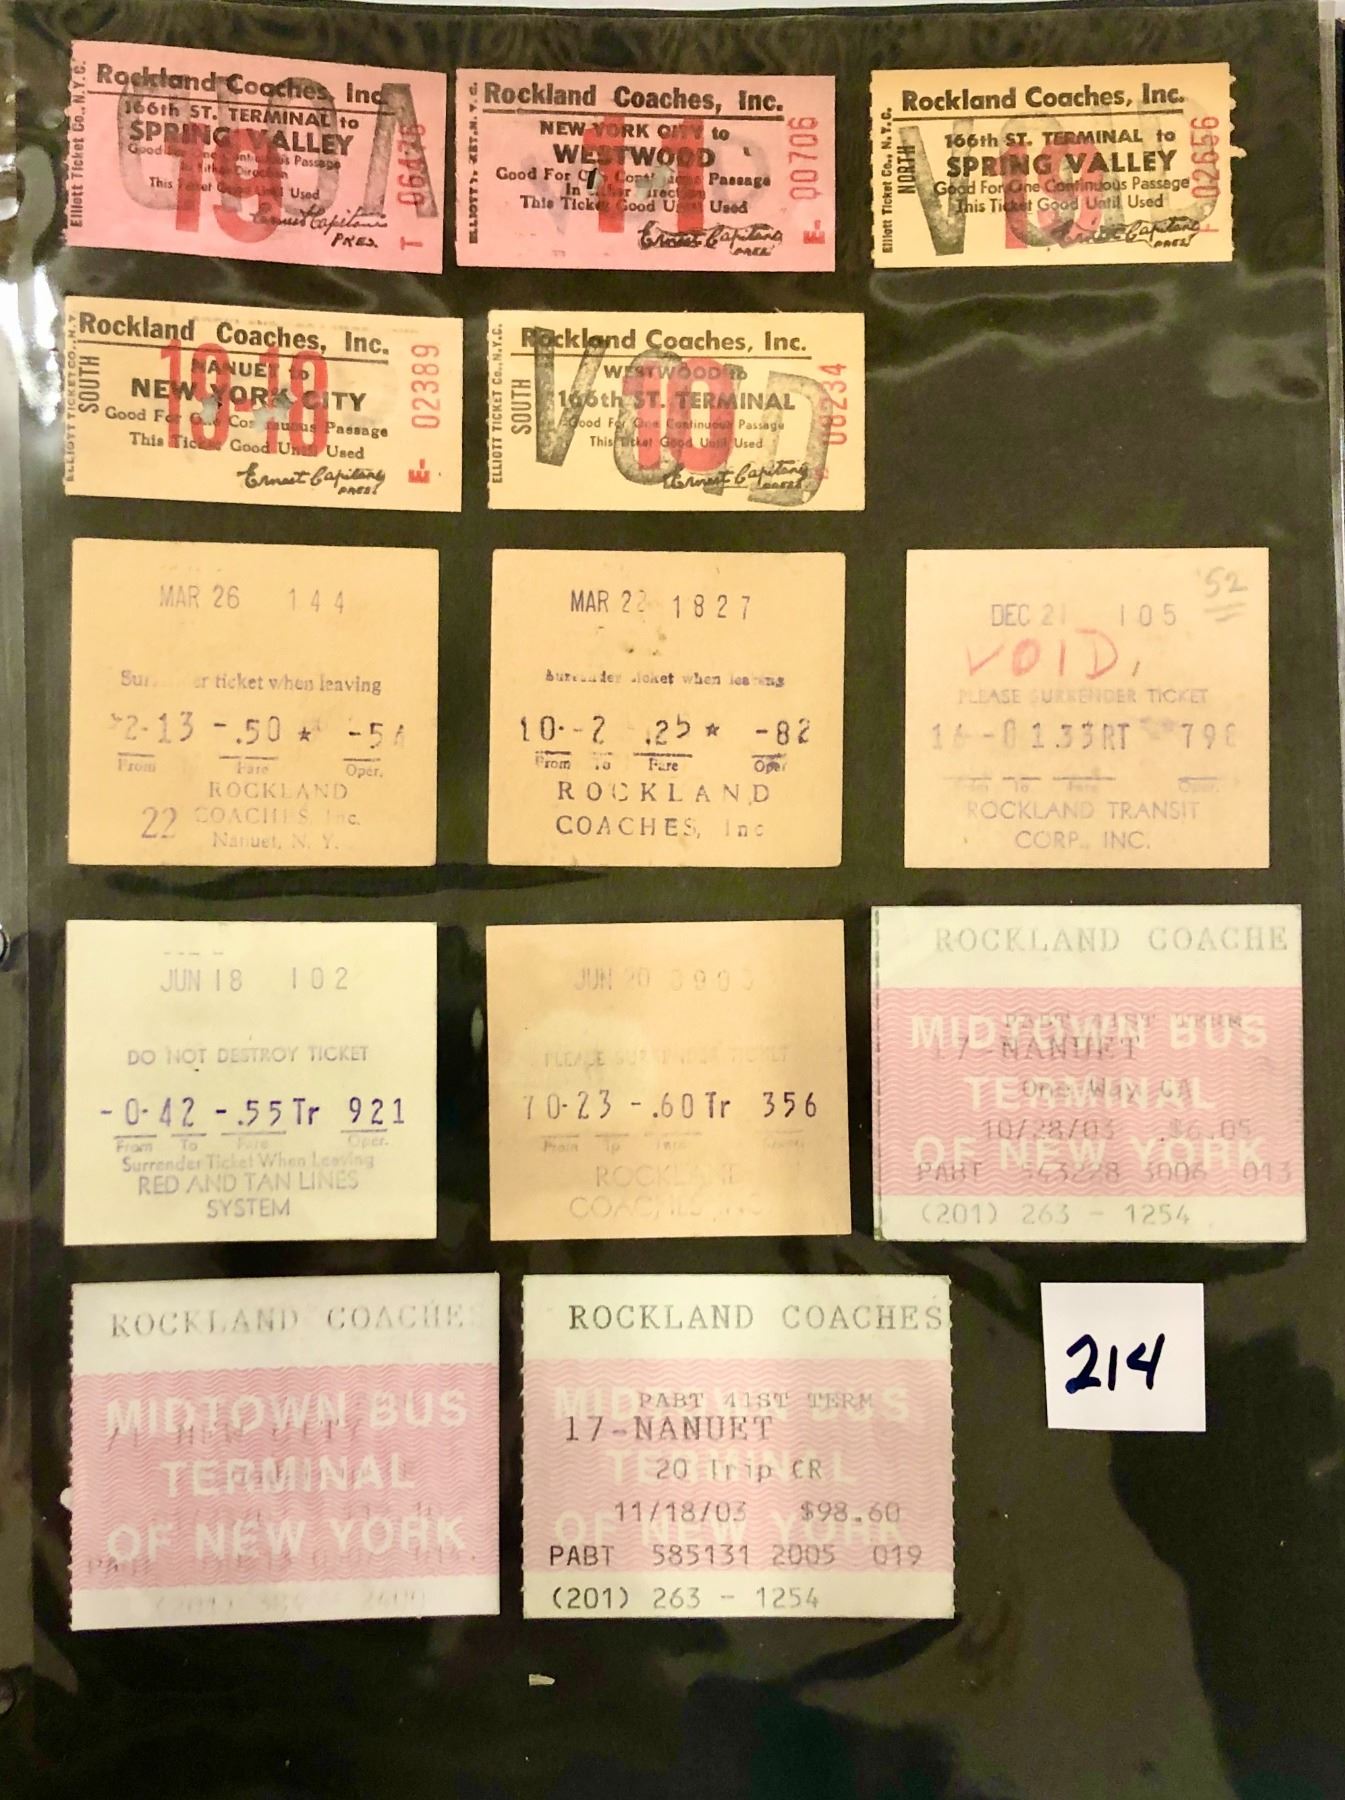 Elliott Ticket Co., N.Y.C.
Rockland Coaches, Inc.
166th ST. TERMINAL to
SPRING VALLEY
Good For One Continuous Passage
In Either Direction
This Ticket Good Until Used
19
Ernest Capitani
PRES.
T 06426
VOID
ELLIOTT TICKET CO., N.Y.C.
Rockland Coaches, Inc.
NEW YORK CITY to
WESTWOOD
Good For One Continuous Passage
In Either Direction
This Ticket Good Until Used
11
Ernest Capitani
PRES.
E- 00706
Elliott Ticket Co., N.Y.C.
NORTH
Rockland Coaches, Inc.
166th ST. TERMINAL to
SPRING VALLEY
Good For One Continuous Passage
This Ticket Good Until Used
Ernest Capitani
PRES.
02656
VOID
ELLIOTT TICKET CO., N.Y.
SOUTH
Rockland Coaches, Inc.
NANUET to
NEW YORK CITY
Good For One Continuous Passage
This Ticket Good Until Used
18-18
Ernest Capitani
PRES.
E- 02389
ELLIOTT TICKET CO., N.Y.C.
SOUTH
Rockland Coaches, Inc.
WESTWOOD to
166th ST. TERMINAL
Good For One Continuous Passage
This Ticket Good Until Used
10
Ernest Capitani
PRES.
08234
VOID
MAR 26 144
Surrender ticket when leaving
2-13 -.50 * -5
From Fare Oper.
ROCKLAND
22 COACHES, Inc.
Nanuet, N. Y.
MAR 22 1827
Surrender ticket when leaving
10--2 .25 * -82
From To Fare Oper
ROCKLAND
COACHES, Inc
'52
DEC 21 105
VOID,
PLEASE SURRENDER TICKET
16-0 1.33 RT 798
From To Fare Oper.
ROCKLAND TRANSIT
CORP., INC.
JUN 18 102
DO NOT DESTROY TICKET
-0-42 -.55 Tr 921
From To Fare Oper.
Surrender Ticket When Leaving
RED AND TAN LINES
SYSTEM
JUN 20
PLEASE SURRENDER TICKET
70-23 -.60 Tr 356
From To Fare
ROCKLAND
COACHES, INC.
ROCKLAND COACHE
MIDTOWN BUS
TERMINAL
OF NEW YORK
PABT 41ST TERM
17-NANUET
One Way CA
10/28/03 $6.05
PABT 543228 3006 013
(201) 263 - 1254
ROCKLAND COACHES
MIDTOWN BUS
TERMINAL
OF NEW YORK
ROCKLAND COACHES
MIDTOWN BUS
TERMINAL
OF NEW YORK
PABT 41ST TERM
17-NANUET
20 Trip CR
11/18/03 $98.60
PABT 585131 2005 019
(201) 263 - 1254
214